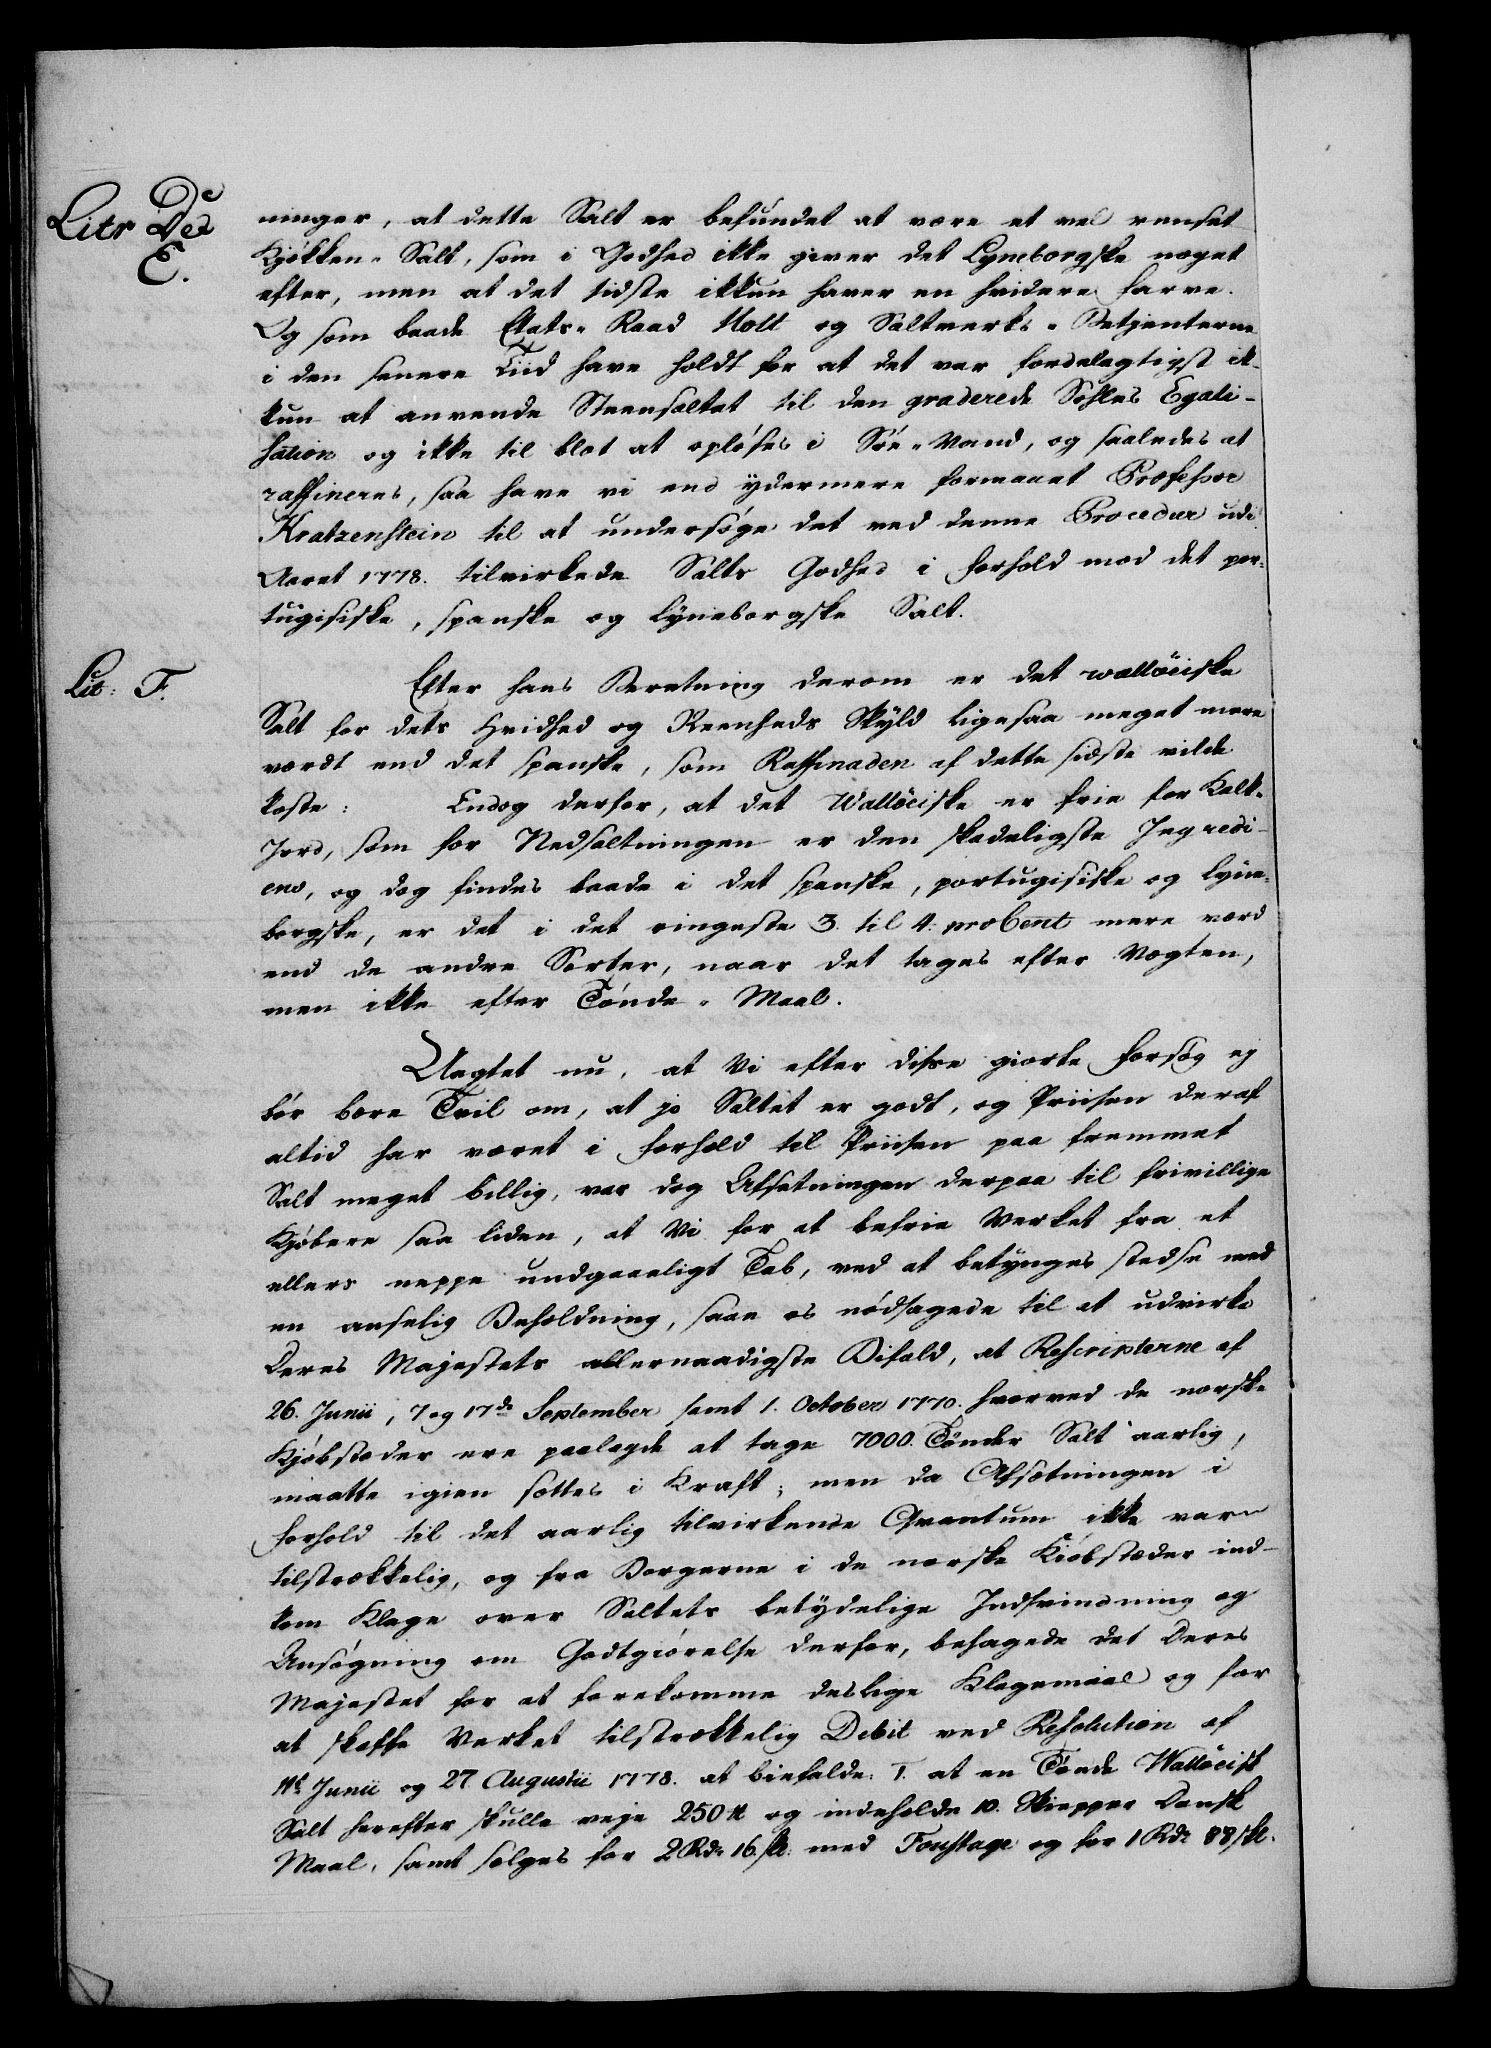 Litr D et
E.
ninger, at dette Salt er befundet at være et vel renset
Kjøkken-Salt, som i Godhed ikke giver det Lyneborgske noget
efter, men at det sidste ikkun haver en hvidere Farve.
Og som baade Etats-Raad Holt og Saltverks-Betjenterne
i den senere Tiid have holdt for at det var fordelagtigst ik-
kun at anvende Steensaltet til den graderede Sohles Egali-
sation og ikke til blot at opløses i Søe-Vand, og saaledes at
raffineres, saa have vi end ydermere formaaet Professor
Kratzenstein til at undersøge det ved denne Procedur udi
Aaret 1778. tilvirkede Salts Godhed i Forhold mod det por-
tugisiske, spanske og Lyneborgske Salt.
Lit: F.
Efter hans Beretning derom er det walløeiske
Salt for dets Hvidhed og Reenheds Skyld ligesaa meget mere
værdt end det spanske, som Raffinaden af dette sidste vilde
koste: Endog derfor, at det Walløeiske er frie for Kalk-
Jord, som for Nedsaltningen er den skadeligste Ingredi-
ens, og dog findes baade i det spanske, portugisiske og Lyne-
borgske, er det i det ringeste 3. til 4. proCent mere værd
end de andre Sorter, naar det tages efter Vægten,
men ikke efter Tønde-Maal.
Uagtet nu, at Vi efter disse giorte Forsøg ej
bør bære Tvil om, at jo Saltet er godt, og Priisen deraf
altid har været i Forhold til Priisen paa fremmet
Salt meget billig, var dog Afsetningen derpaa til frivillige
Kjøbere saa liden, at Vi for at befrie Verket fra et
ellers neppe undgaaeligt Tab, ved at betynges stedse med
en anselig Beholdning, saae os nødsagede til at udvirke
Deres Majestets allernaadigste Bifald, at Rescripterne af
26. Junii, 7 og 17de September samt 1. October 1770. hvorved de norske
Kjøbstæder ere paalagde at tage 7000. Tønder Salt aarlig,
maatte igien sættes i Kraft; men da Afsætningen i
Forhold til det aarlig tilvirkende Qvantum ikke var
tilstrækkelig, og fra Borgerne i de norske Kiøbstæder ind-
kom Klage over Saltets betydelige Indsvindning og
Ansøgning om Godtgiørelse derfor, behagede det Deres
Majestet for at forekomme deslige Klagemaal og for
at skaffe Verket tilstrækkelig Debit ved Resolution af
11te Junii og 27. Augustii 1778. at biefalde: 1. at en Tønde Walløeisk
Salt herefter skulle veje 250 ℔ og indeholde 10. Skiepper Dansk
Maal, samt sælges for 2 Rdr 16 sk: med Foustage og for 1 Rdr 88 sk.